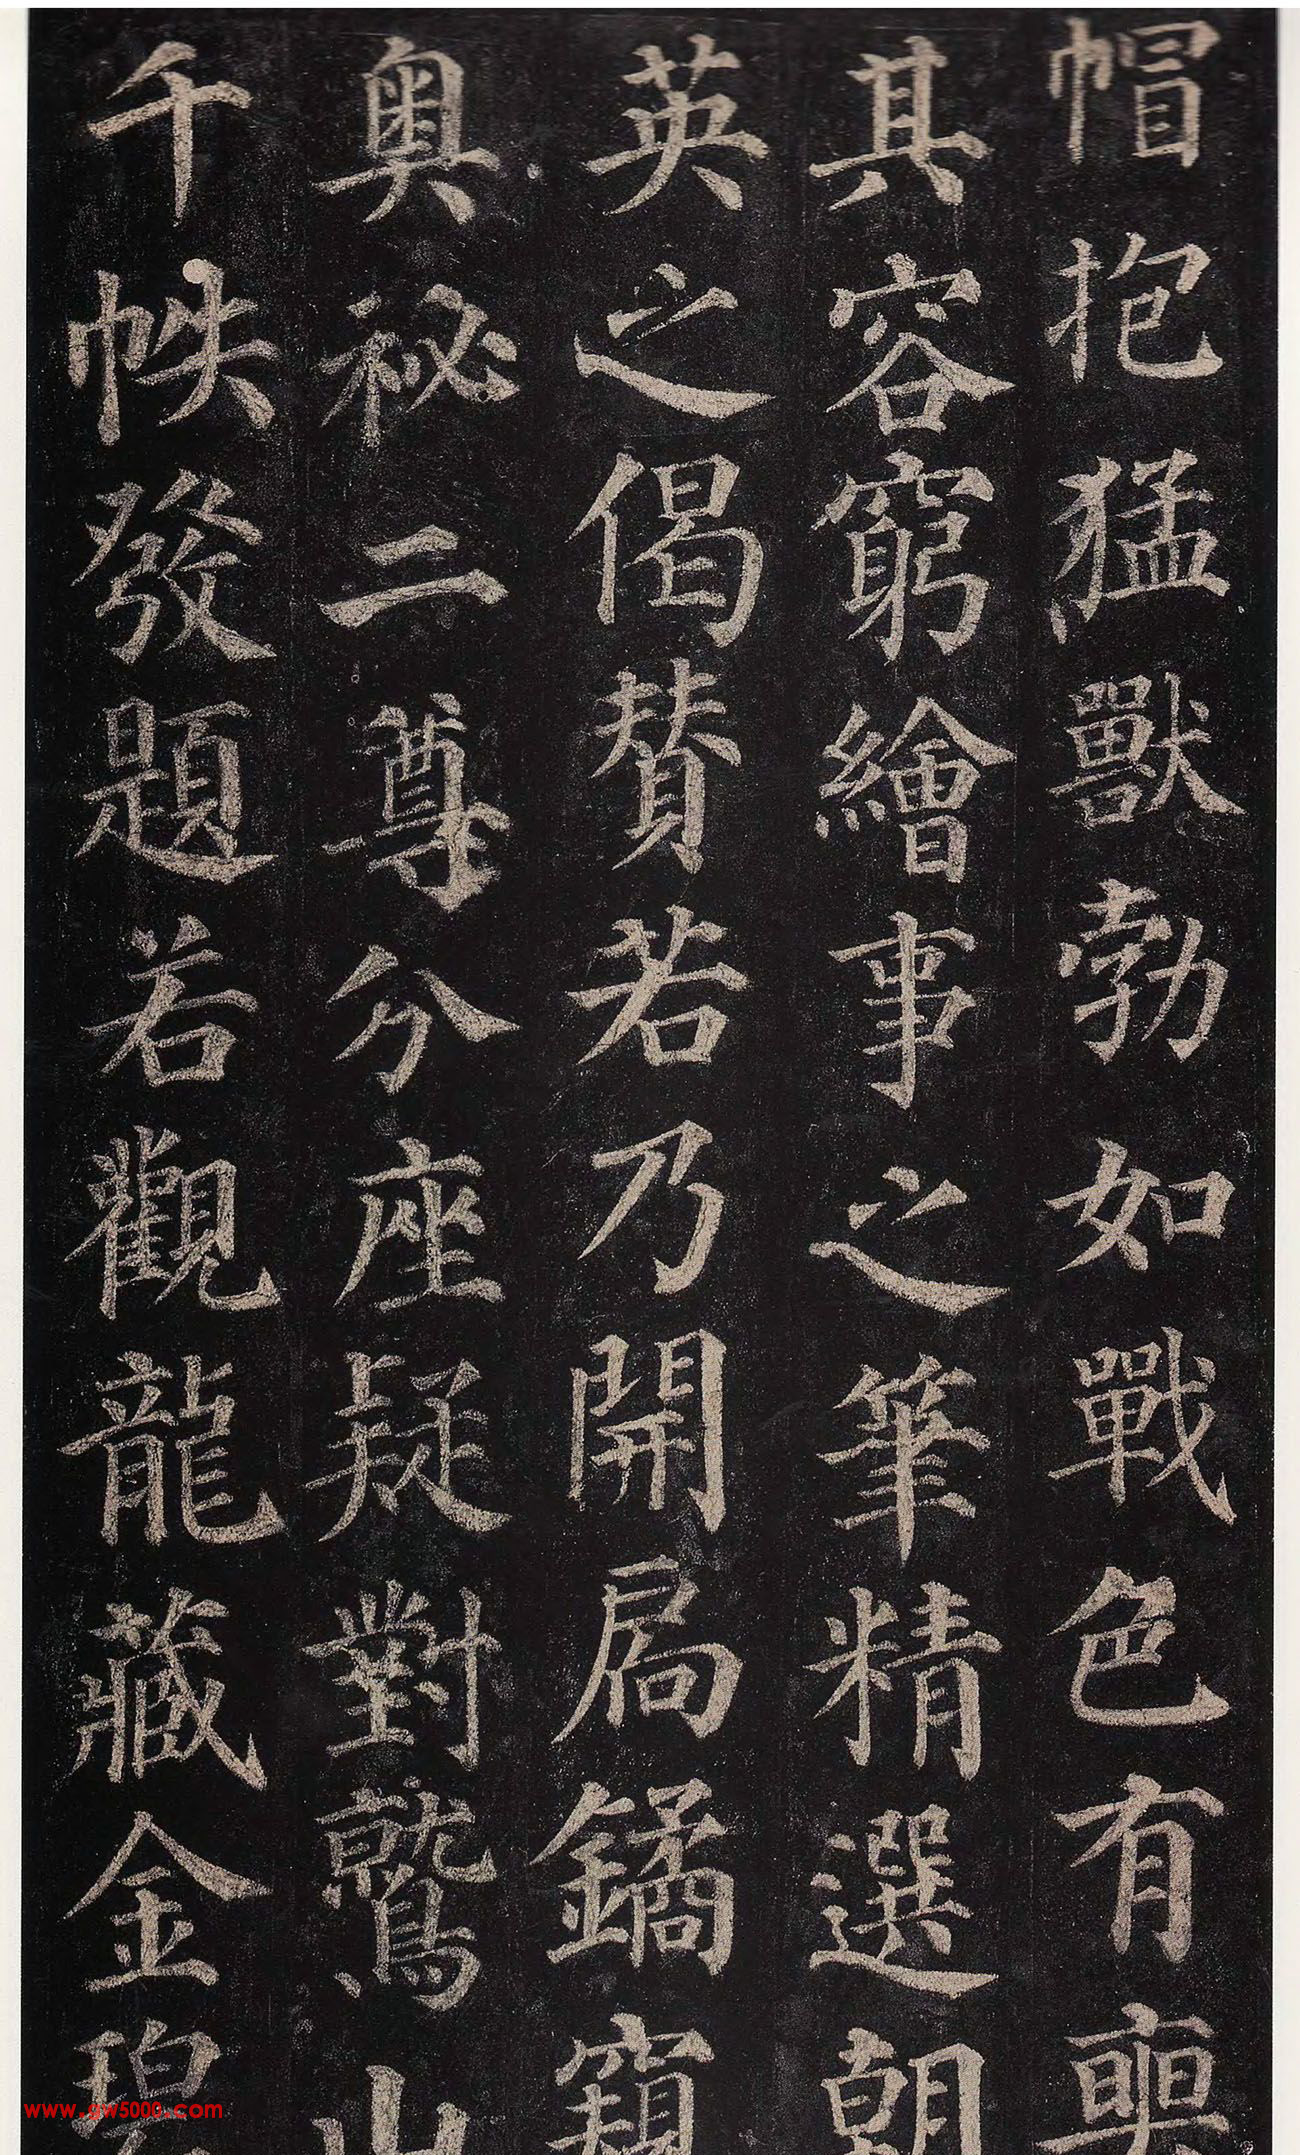 帽抱猛獸勃如戰色有
其容窮繪事之筆精選朝
英之偈贊若乃開扃鐍窺
奧祕二尊分座疑對鷲山
千帙發題若觀龍藏金碧
www.gw5000.com